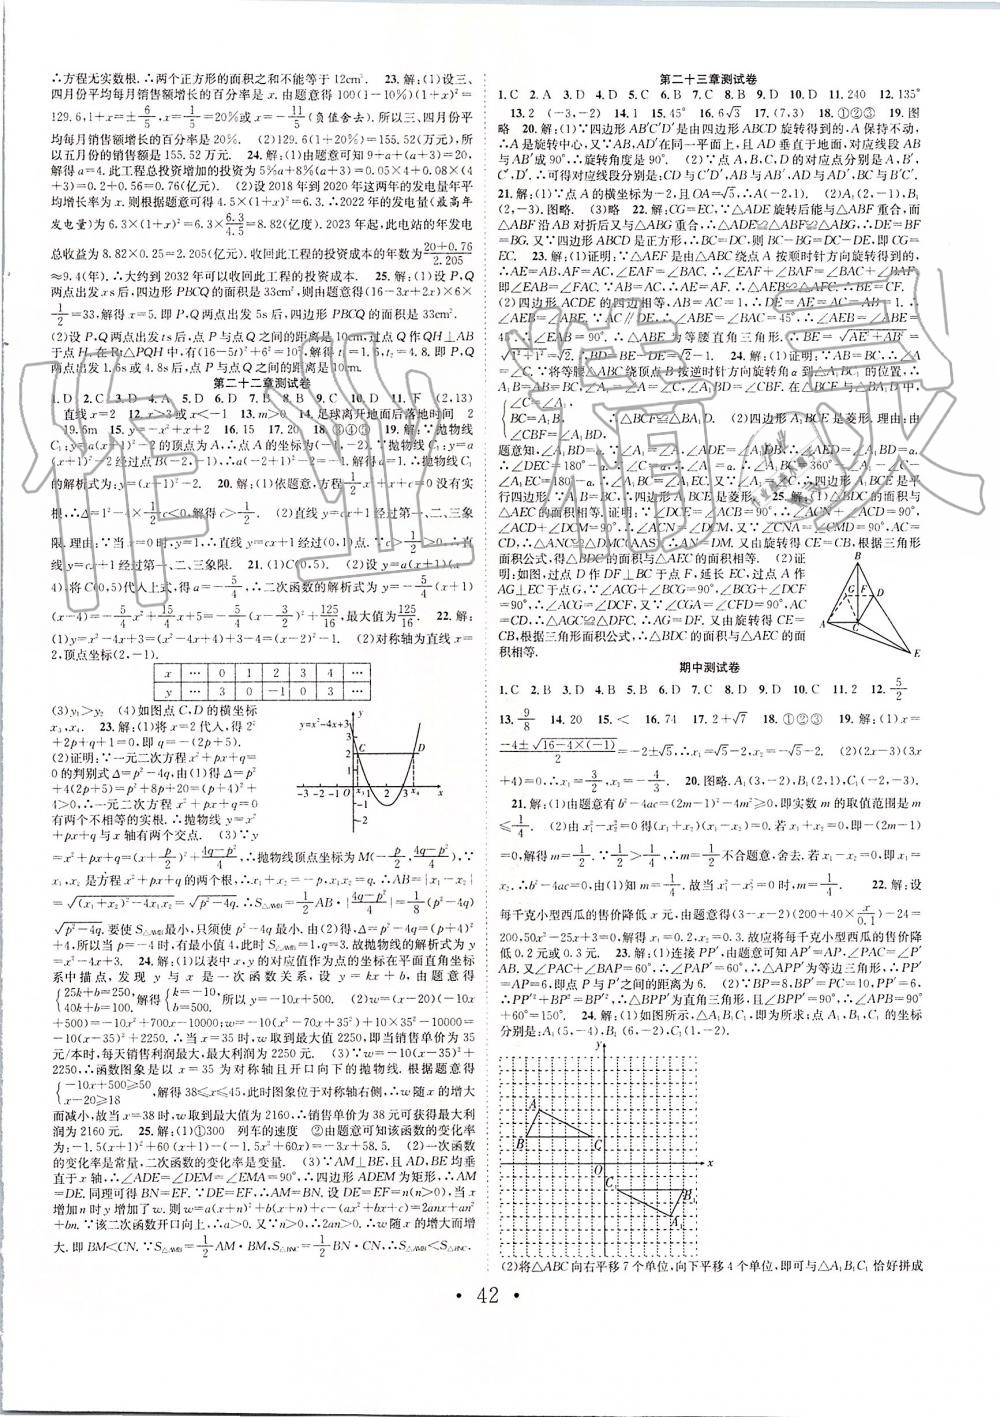 ∴方程无实数根.∴两个正方形的面积之和不能等于12cm². 23.解:(1)设三、
四月份平均每月销售额增长的百分率是x.由题意得100(1-10%)(1+x)²=
129.6,1+x=±6/5,∴x=1/5=20%或x=-11/5(负值舍去).所以三、四月份平
均每月销售额增长的百分率是20%. (2)129.6(1+20%)=155.52(万元),所
以五月份的销售额是155.52万元. 24.解:(1)由题意可知9+a+(a+3)=20,
解得a=4.此工程总投资增加的投资为5%a+8%(a+3)=0.05×4+0.08×(4
+3)=0.2+0.56=0.76(亿元). (2)设2018年到2020年这两年的发电量年平
均增长率为x.则根据题意可得4.5×(1+x)²=6.3.∴2022年的发电量(最高年
发电量)为6.3×(1+x)²=6.3×6.3/4.5=8.82(亿度).2023年起,此电站的年发电
总收益为8.82×0.25=2.205(亿元).收回此工程的投资成本的年数为(20+0.76)/2.205
≈9.4(年).∴大约到2032年可以收回此工程的投资成本. 25.解:(1)设P,Q
两点出发xs后,四边形PBCQ的面积是33cm²,则由题意得(16-3x+2x)×6×
1/2=33,解得x=5.即P,Q两点出发5s后,四边形PBCQ的面积是33cm².
(2)设P,Q两点出发ts后,点P与点Q之间的距离是10cm,过点Q作QH⊥AB
于点H.在Rt△PQH中,有(16-5t)²+6²=10²,解得t₁=1.6,t₂=4.8.即P,Q
两点出发1.6s或4.8s后,点P与点Q之间的距离是10cm.
第二十二章测试卷
1.D 2.C 3.D 4.A 5.D 6.D 7.B 8.B 9.C 10.D 11.下 (2,13)
直线x=2 12.x>3或x<-1 13.m>0 14.足球离开地面后落地时间 2
19.6m 15.y=-x²+x+2 16.15 17.20 18.③④⑤ 19.解:∵抛物线
C₁:y=a(x+1)²-2的顶点为A,∴点A的坐标为(-1,-2).∵抛物线C₁:y=a(x
+1)²-2经过点B(-2,-1),∴a(-2+1)²-2=-1.解得a=1.∴抛物线C₁
的解析式为:y=(x+1)²-2. 20.解:(1)依题意,方程1/4x²+x+c=0没有实
根,∴Δ=1²-4×1/4c<0,解得c>1. (2)直线y=cx+1经过第一、二、三象
限.理由:∵当x=0时,y=1,∴直线y=cx+1经过(0,1)点.∵c>1,∴直线y=
cx+1经过第一、二、三象限. 21.(1)C(0,5). (2)设y=a(x+1)(x-4),
将C(0,5)代入,得a=-5/4,∴二次函数的解析式为y=-5/4(x+1)(x-4)
=-5/4x²+15/4x+5=-5/4(x-3/2)²+125/16,最大值为125/16. 22.解:
(1)y=x²-4x+3=(x²-4x+4)+3-4=(x-2)²-1. (2)对称轴为直线x=
2,顶点坐标(2,-1).
x … 0 1 2 3 4 …
y … 3 0 -1 0 3 …
(3)y₁>y₂ (4)如图点C,D的横坐标
x₃,x₄. 23.解:(1)将x=2代人,得2²
+2p+q+1=0,即q=-(2p+5).
(2)证明:∵一元二次方程x²+px+q=
0的判别式Δ=p²-4q,由(1)得Δ=p²
+4(2p+5)=p²+8p+20=(p+4)²+
4>0,∴一元二次方程x²+px+q=0
有两个不相等的实根.∴抛物线y=x²
+px+q与x轴有两个交点. (3)∵y
=x²+px+q=(x+p/2)²+(4q-p²)/4,∴抛物线顶点坐标为M(-p/2,(4q-p²)/4),∵
x₁,x₂是方程x²+px+q的两个根,∴x₁+x₂=-p,x₁x₂=q.∴AB=|x₁-x₂|
=√((x₁+x₂)²-4x₁x₂)=√(p²-4q).∴S△AMB=1/2AB·|(4q-p²)/4|=1/8(p²-4q)
√(p²-4q).要使S△AMB最小,只须使p²-4q最小.由(2)得,Δ=p²-4q=(p+4)²
+4,所以当p=-4时,有最小值4,此时S△AMB=1,q=3.故抛物线的解析式为y
=x²-4x+3. 24.解:(1)以表中x,y的对应值作为点的坐标在平面直角坐标
系中描点,发现y与x是一次函数关系,设y=kx+b,由题意得
{25k+b=250, 40k+b=100. 解得{k=-10, b=500. 所以y=-10x+500. (2)w=(x-20)(-10x
+500)=-10x²+700x-10000;w=-10(x²-70x+35²)+10×35²-10000=
-10(x-35)²+2250.∴当x=35时,w取到最大值2250,即当销售单价为35
元/本时,每天销售利润最大,最大利润为2250元. (3)∵w=-10(x-35)²+
2250,∴函数图象是以x=35为对称轴且开口向下的抛物线.根据题意得
{-10x+500≥50 x-20≥18 ,解得38≤x≤45,此时图象位于对称轴右侧,∴w随x的增大
而减小,故当x=38时,w取到最大值为2160,∴销售单价为38元可获得最大利
润为2160元. 25.解:(1)①300 列车的速度 ②由题意可知该函数的变化率为:
-1.5(x+1)²+60(x+1)-(-1.5x²+60x)=-3x+58.5. (2)一次函数
的变化率是常量,二次函数的变化率是变量. (3)∵AM⊥BE,且AD,BE均垂
直于x轴,∴∠ADE=∠DEM=∠EMA=90°,∴四边形ADEM为矩形,∴AM
=DE.同理可得BN=EF.∵DE=EF,∴AM=BN.设DE=EF=n(n>0),当x
增加n时y增加了w.则w=a(x+n)²+b(x+n)+c-(ax²+bx+c)=2anx+an²
+bn.∵该二次函数开口向上,∴a>0.又∵n>0,∴2an>0.∴w随x的增大而增
大.即BM<CN.∵S△AMB=1/2AM·BM,S△BNC=1/2BN·CN,∴S△AMB<S△BNC.
y=x²-4x+3
y
3
2
1
C D
-3 -2 -1 O 1 x₃ 2 3 x₄ x
-1
-2
第二十三章测试卷
1.C 2.A 3.D 4.B 5.D 6.D 7.C 8.B 9.D 10.D 11.240 12.135°
13.2 (-3,-2) 14.1 15.45° 16.6√3 17.(7,3) 18.①②③ 19.图
略 20.解:(1)∵四边形AB′C′D′是由四边形ABCD旋转得到的,A保持不动,
∴A是旋转中心,又∵AB,AD′在同一平面上,且AD垂直于地面,对应线段AB
与AB′成90°,∴旋转角度是90°. (2)∵点A,B,C,D的对应点分别是A,B′,
C′,D′,∴可得对应线段分别是:CD与C′D′,AB与AB′,AD与AD′,BC与B′C′.
21.解:(1)∵点A的横坐标为-2,且OA=√5,∴A(-2,1). (2)A(2,-1),B
(2,-3).图略. (3)略 22.解:CG=EC.∵△ADE旋转后能与△ABF重合,而
△ABF沿AB对折后又与△ABG重合,∴△ADE≌△ABF≌△ABG,∴DE=BF
=BG.又∵四边形ABCD是正方形,∴BC=DC,则BC-BG=DC-DE,即CG=
EC. 23.解:(1)证明:∵△AEF是由△ABC绕点A按顺时针方向旋转得到的,
∴AE=AB,AF=AC,∠EAF=∠BAC.∴∠EAF+∠BAF=∠BAC+∠BAF,
即∠EAB=∠FAC.∵AB=AC,∴AE=AF.∴△AEB≌△AFC,∴BE=CF.
(2)四边形ACDE的四边相等,AB=AC=1,∴DE=AE=AC=AB=1.
∴∠AEB=∠ABE.∵AC∥DE,∴∠ABE=∠BAC=45°.∴∠AEB=∠ABE
=45°,∴△ABE为等腰直角三角形,∴BE=√(AE²+AB²)=
√(1²+1²)=√2.∴BD=BE-DE=√2-1. 24.(1)证明:∵AB=BC,∴∠A=
∠C.∵将等腰△ABC绕顶点B按逆时针方向旋转α到△A₁BC₁的位置,∴
A₁B=AB=BC,∠A=∠A₁=∠C,∠A₁BD=∠CBC₁.在△BCF与△BA₁D中,
{∠C=∠A₁, BC=A₁B, ∠CBF=∠A₁BD, ∴△BCF≌△BA₁D. (2)四边形A₁BCE是菱形,理由:由
题意知,∵∠A=∠A₁,∠ADE=∠A₁DB,∴∠AED=∠A₁BD=α,
∴∠DEC=180°-α.∵∠C=α,∴∠A₁=α.∴∠A₁BC=360°-∠A₁-∠C
-∠DEC=180°-α.∴∠A₁=∠C,∠A₁BC=∠DEC,∴四边形A₁BCE是平
行四边形.又∵A₁B=BC,∴四边形A₁BCE是菱形. 25.解:(1)△BDC的面积与
△AEC的面积相等.
由旋转得CE=CB,根据三角形
面积公式,得△BDC的面积与△AEC的面积相等. (2)证
明:如图,过点D作DF⊥BC于点F,延长EC,过点A作
AG⊥EC于点G,∵∠ACD=∠BCE=90°,∴∠BCG
=90°,∴∠ACG=∠DCF.又∵∠AGC=∠DFC=90°,
AC=DC,∴△ACG≌△DCF.∴AG=DF.又由旋转得CE=
CB,根据三角形面积公式,∴△BDC的面积与△AEC的面积
相等.
B
G F D
A C
E
期中测试卷
1.C 2.B 3.D 4.D 5.A 6.C 7.D 8.B 9.D 10.C 11.2 12.5/2
13.-9/8 14.20 15.< 16.74 17.2+√7 18.①②③ 19.解:(1)x=
(-4±√(16-4×(-1)))/2=-2±√5,∴x₁=√5-2,x₂=-√5-2. (2)(2x-3)(3x
+4)=0,∴x₁=3/2,x₂=-4/3. 20.图略.A₁(3,-2),B₁(2,1),C₁(-2,-3).
21.解:(1)由题意有b²-4ac=(2m-1)²-4m²≥0,即实数m的取值范围是m
≤1/4. (2)由x₁²-x₂²=0得(x₁+x₂)(x₁-x₂)=0.若x₁+x₂=0,即-(2m-1)
=0,解得m=1/2.∵1/2>1/4,∴m=1/2不合题意,舍去.若x₁-x₂=0,即x₁=
x₂,∴b²-4ac=0,由(1)知m=1/4.故当x₁²-x₂²=0时,m=1/4. 22.解:设
每千克小型西瓜的售价降低x元,由题意得(3-x-2)(200+40×x/0.1)-24=
200,50x²-25x+3=0,解得x₁=0.2,x₂=0.3.故应将每千克小型西瓜的售价降
低0.2元或0.3元. 23.解:(1)连接PP′,由题意可知AP′=AP,∠PAC=∠P′
AB.又∠PAC+∠BAP=60°,∴∠PAP′=60°.∴△APP′为等边三角形,∴PP′
=AP=6,即点P与P′之间的距离为6. (2)∵BP=8,BP′=PC=10,PP′=6,
∴PP′²+BP²=BP′²,∴△BPP′为直角三角形,且∠BPP′=90°,∴∠APB=90°
+60°=150°. 24.解:(1)如图所示,△A₁B₁C₁即为所求;点A₁,B₁,C₁的坐标
分别是:A₁(5,-4),B₁(6,-2),C₁(1,-2).
y
A
B C
O x
C₁ B₁
A₁
(2)将△ABC向右平移7个单位,向下平移4个单位,即可与△A₁B₁C₁恰好拼成
· 42 ·
作业精灵